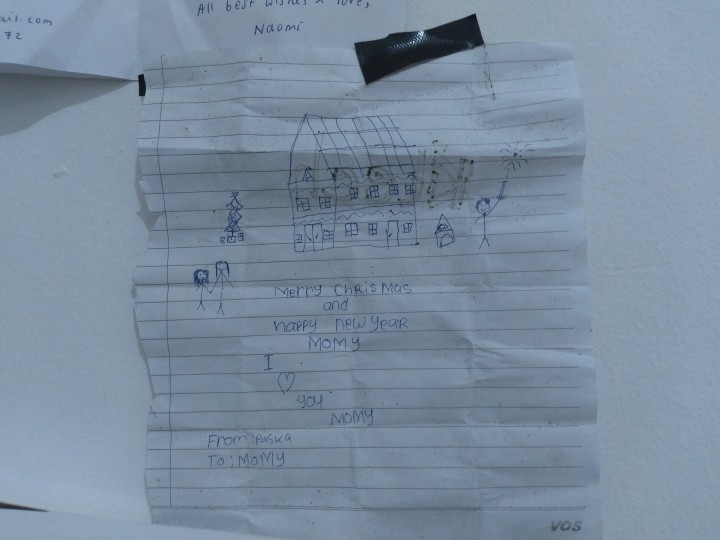 ail.com
72
All best wishes & love,
Naomi
Merry ChRisMas
and
happy new year
MOMY
I
♡
you
MOMY
From: Paska
To: MOMY
VOS